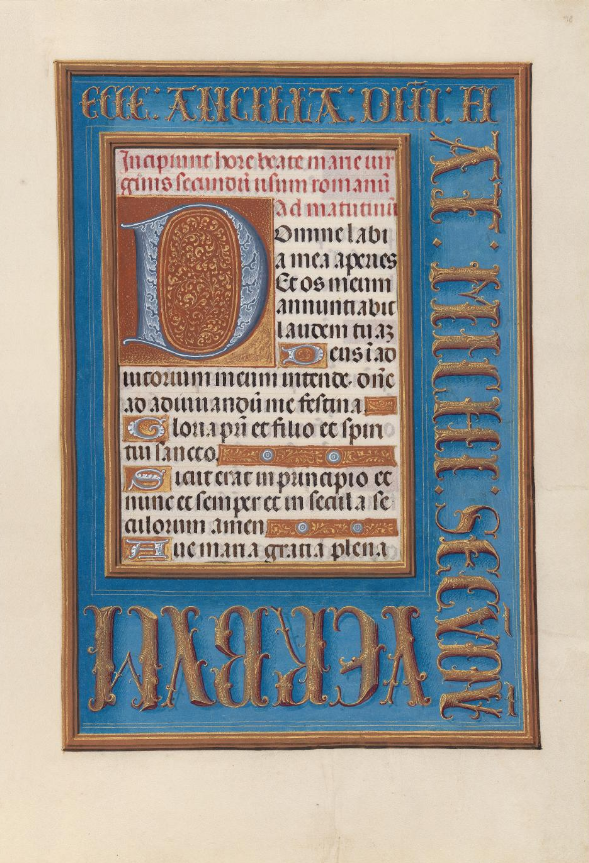 ECCE : ANCILLA : DÑI : FI
AT · MICHI · SECŪDŪ
VERBVM
Incipiunt hore beate marie uir
ginis secundū usum romanū
Ad matutinū
Domine labi
a mea aperies
Et os meum
annuntiabit
laudem tuaʒ
Deus ī ad
iutorium meum intende. dn̄e
ad adiuuandū me festina
Gloria pr̄i et filio et spiri
tui sancto.
Sicut erat in principio et
nunc et semper et in secula se
culorum amen
Aue maria gratia plena